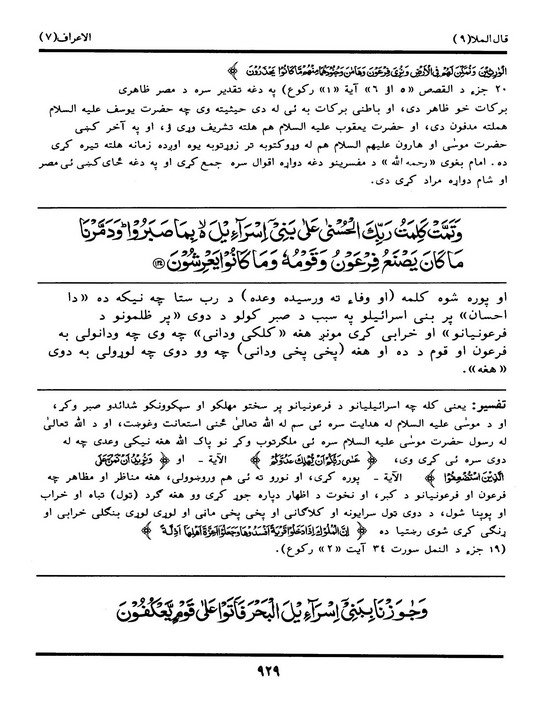 قال الملا (۹)
الاعراف (۷)
الْوٰرِثِيْنَ وَنُمَكِّنَ لَهُمْ فِى الْاَرْضِ وَنُرِىَ فِرْعَوْنَ وَهَامٰنَ وَجُنُوْدَهُمَا مِنْهُمْ مَّا كَانُوْا يَحْذَرُوْنَ ﴾
۲۰ جزء د القصص «٥ او ٦» آية «۱» رکوع) په دغه تقدیر سره د مصر ظاهری
برکات خو ظاهر دی، او باطنی برکات به ئی له دی حیثیته وی چه حضرت یوسف علیه السلام
هملته مدفون دی، او حضرت یعقوب علیه السلام هم هلته تشریف وړی ؤ، او په آخر کښی
حضرت موسٰی او هارون علیهم السلام هم له وړوکتوبه تر زوړتوبه یوه اوږده زمانه هلته تیره کړی
ده. امام بغوی «رحمه الله» د مفسرینو دغه دواړه اقوال سره جمع کړی او په دغه ځای کښی ئی مصر
او شام دواړه مراد کړی دی.
وَتَمَّتْ كَلِمَتُ رَبِّكَ الْحُسْنٰى عَلٰى بَنِىْۤ اِسْرَآءِيْلَ ۙ۬ بِمَا صَبَرُوْا ؕ وَدَمَّرْنَا
مَا كَانَ يَصْنَعُ فِرْعَوْنُ وَقَوْمُهٗ وَمَا كَانُوْا يَعْرِشُوْنَ
او پوره شوه کلمه (او وفاء ته ورسیده وعده) د رب ستا چه نیکه ده «دا
احسان» پر بنی اسرائیلو په سبب د صبر کولو د دوی «پر ظلمونو د
فرعونیانو» او خرابی کړی مونږ هغه «کلکی ودانی» چه وی چه ودانولی به
فرعون او قوم د ده او هغه (پخی پخی ودانی) چه وو دوی چه لوړولی به دوی
«هغه».
تفسیر: یعنی کله چه اسرائیلیانو د فرعونیانو پر سختو مهلکو او سپکوونکو شدائدو صبر وکړ،
او د موسٰی علیه السلام له هدایت سره ئی سم له الله تعالیٰ څنی استعانت وغوښت، او د الله تعالیٰ
له رسول حضرت موسٰی علیه السلام سره ئی ملګرتوب وکړ نو پاک الله هغه نیکی وعدی چه له
دوی سره ئی کړی وی، ﴿ عَسٰى رَبُّكُمْ اَنْ يُّهْلِكَ عَدُوَّكُمْ ﴾ الآية - او ﴿ وَنُرِيْدُ اَنْ نَّمُنَّ عَلَى
الَّذِيْنَ اسْتُضْعِفُوْا ﴾ الآية - پوره کړی، او نورو ته ئی هم وروښوولی، هغه مناظر او مظاهر چه
فرعون او فرعونیانو د کبر، او نخوت د اظهار دپاره جوړ کړی وو هغه ګرد (ټول) تباه او خراب
او پوپنا شول، د دوی ټول سرایونه او کلاګانی او پخی پخی مانۍ او لوړی لوړی بنګلی خرابی او
ړنګی کړی شوی رښتیا ده ﴿ اِنَّ الْمُلُوْكَ اِذَا دَخَلُوْا قَرْيَةً اَفْسَدُوْهَا وَجَعَلُوْۤا اَعِزَّةَ اَهْلِهَاۤ اَذِلَّةً ﴾
(۱۹ جزء د النمل سورت ٣٤ آیت «۲» رکوع).
وَجَاوَزْنَا بِبَنِىْۤ اِسْرَآءِيْلَ الْبَحْرَ فَاَتَوْا عَلٰى قَوْمٍ يَّعْكُفُوْنَ
۹۲۹